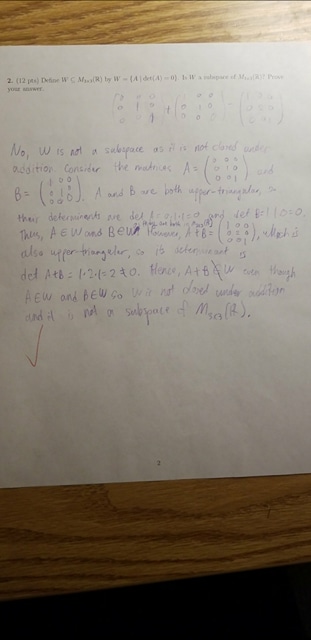 2. (12 pts) Define W ⊆ M₃ₓ₃(ℝ) by W = {A | det(A) = 0}. Is W a subspace of M₃ₓ₃(ℝ)? Prove
your answer.
No, W is not a subspace as it is not closed under
addition. Consider the matrices A = (0 0 0; 0 1 0; 0 0 1) and
B = (1 0 0; 0 1 0; 0 0 0). A and B are both upper-triangular, so
their determinants are det A = 0·1·1=0 and det B=1·1·0=0.
Thus, A∈W and B∈W. However, A+B = (1 0 0; 0 2 0; 0 0 1), which is
also upper-triangular, so its determinant is
det A+B = 1·2·1=2≠0. Hence, A+B∉W even though
A∈W and B∈W so W is not closed under addition
and it is not a subspace of M₃ₓ₃(ℝ).
2